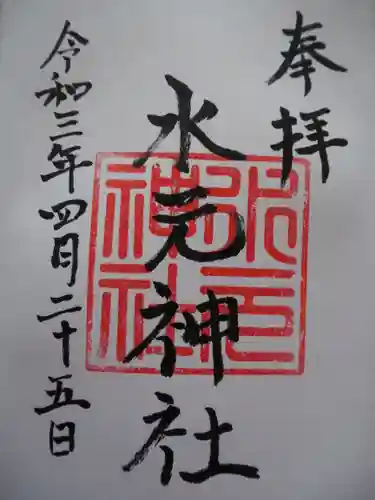 奉拝
水元神社
水元神社
令和三年四月二十五日